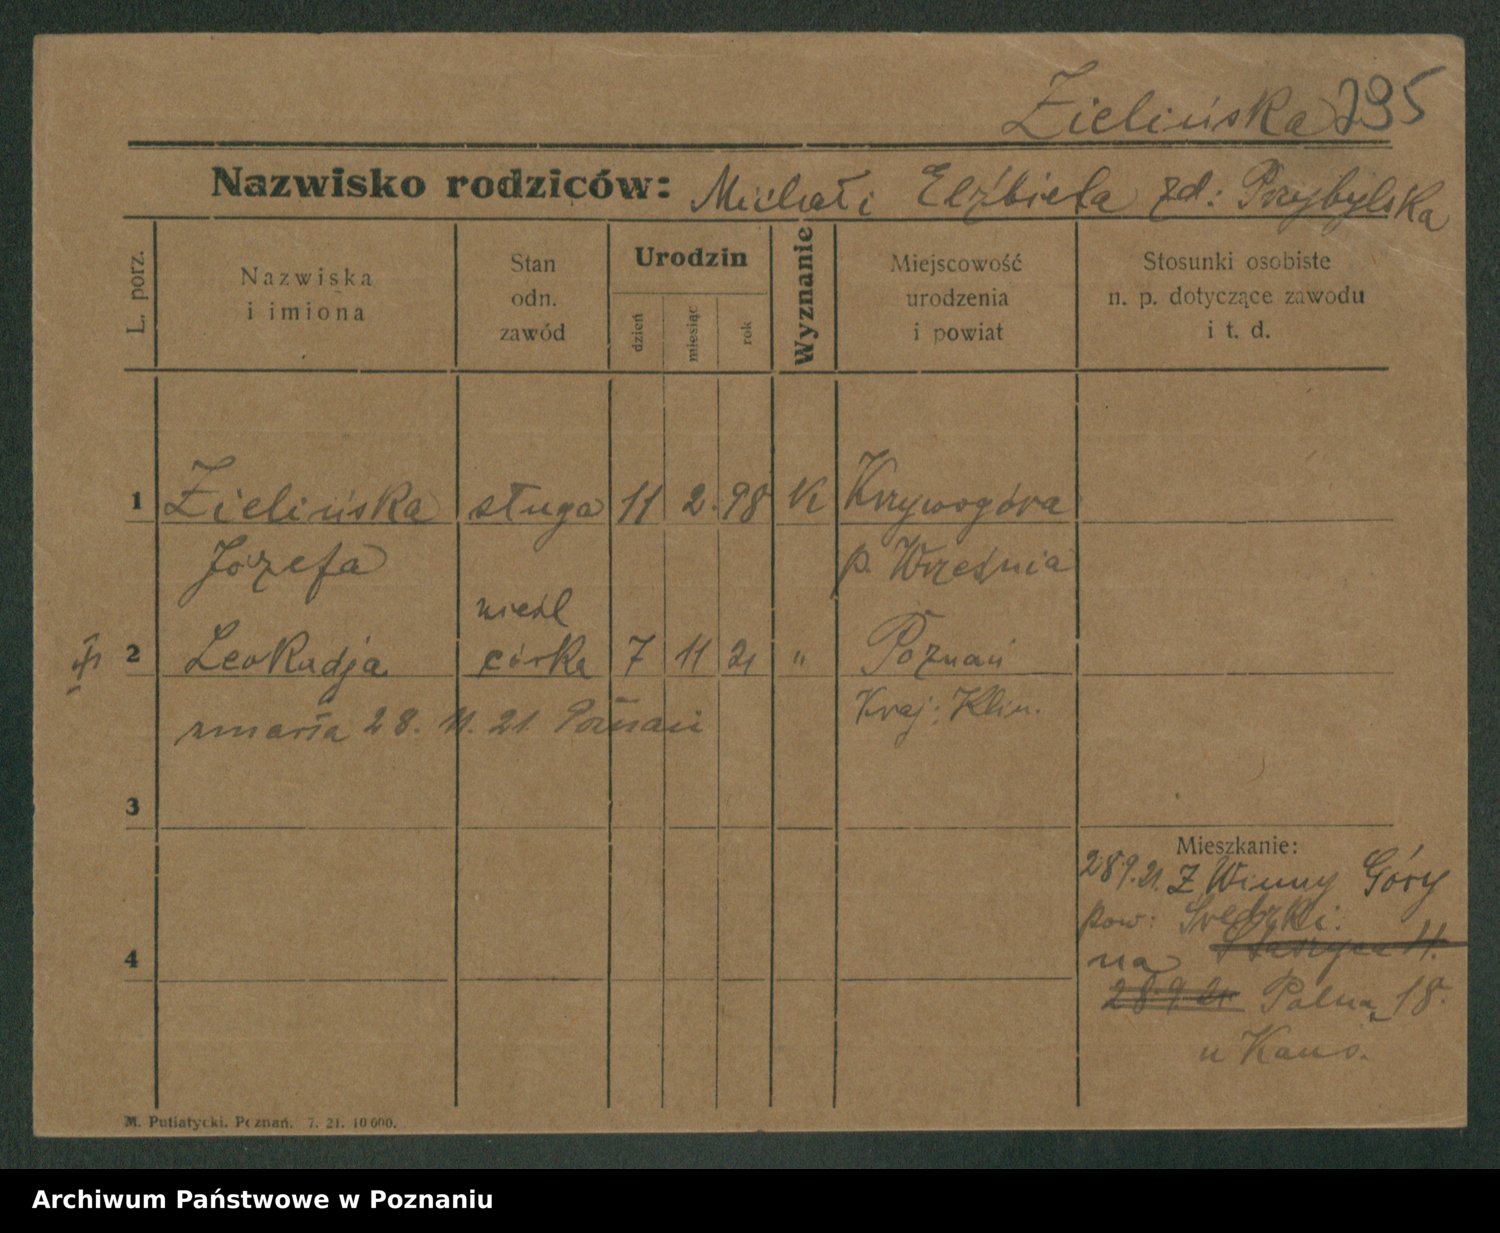 Zielińska 295
Nazwisko rodziców: Michał i Elżbieta zd: Przybylska
L. porz.
Nazwiska i imiona
Stan odn. zawód
Urodzin
dzień
miesiąc
rok
Wyznanie
Miejscowość urodzenia i powiat
Stosunki osobiste n. p. dotyczące zawodu i t. d.
1 Zielińska sługa 11 2. 98 K Krzywogóra
Józefa p. Września
nieśl
2 Leokadja córka 7 11 21 " Poznań
zmarła 28. 11. 21 Poznań Kraj: Klin.
3
Mieszkanie:
28 9. 21. Z Winny Góry
pow: Średzki.
4 na
28.9.21 Polna 18.
u
M. Putiatycki, Poznań. 7. 21. 10 000.
Archiwum Państwowe w Poznaniu